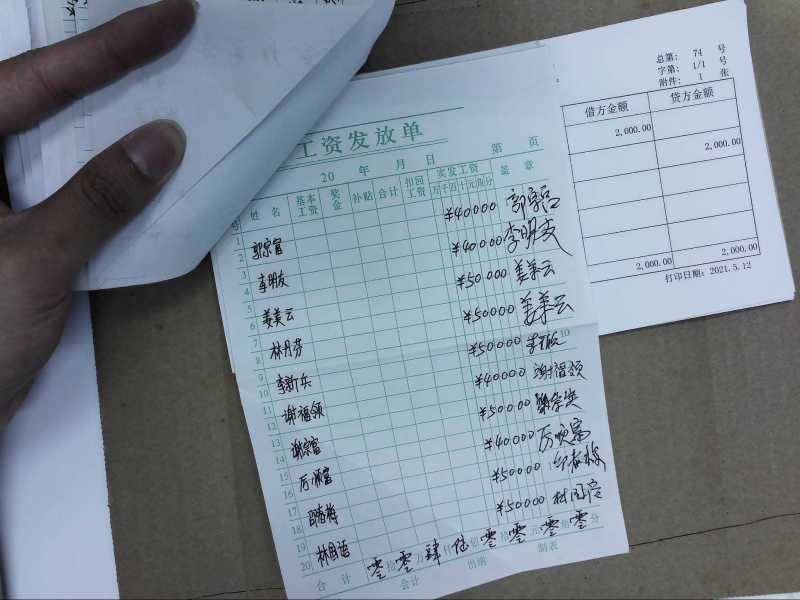 总第: 74 号
字第: 1/1 号
附件: 1 张
借方金额 贷方金额
2,000.00
2,000.00
2,000.00 2,000.00
打印日期: 2021.5.12
工资发放单
20 年 月 日 第 页
号 姓名 基本工资 奖金 补贴 合计 扣回工资 实发工资 盖章
万千百十元角分
1 郭宗富 ¥40000
2
3 李明友 ¥40000 李明友
4
5 姜美云 ¥50000 姜美云
6
7 林丹芬 ¥50000 姜美云
8
9 李新兵 ¥50000
10
11 谢福领 ¥40000 谢福领
12
13 谢宗富 ¥50000
14
15 厉顺富 ¥40000 厉顺富
16
17 邵春梅 ¥50000
18
19 ¥50000
20
合计 零拾零万肆仟伍佰零拾零元零角零分
会计 出纳 制表